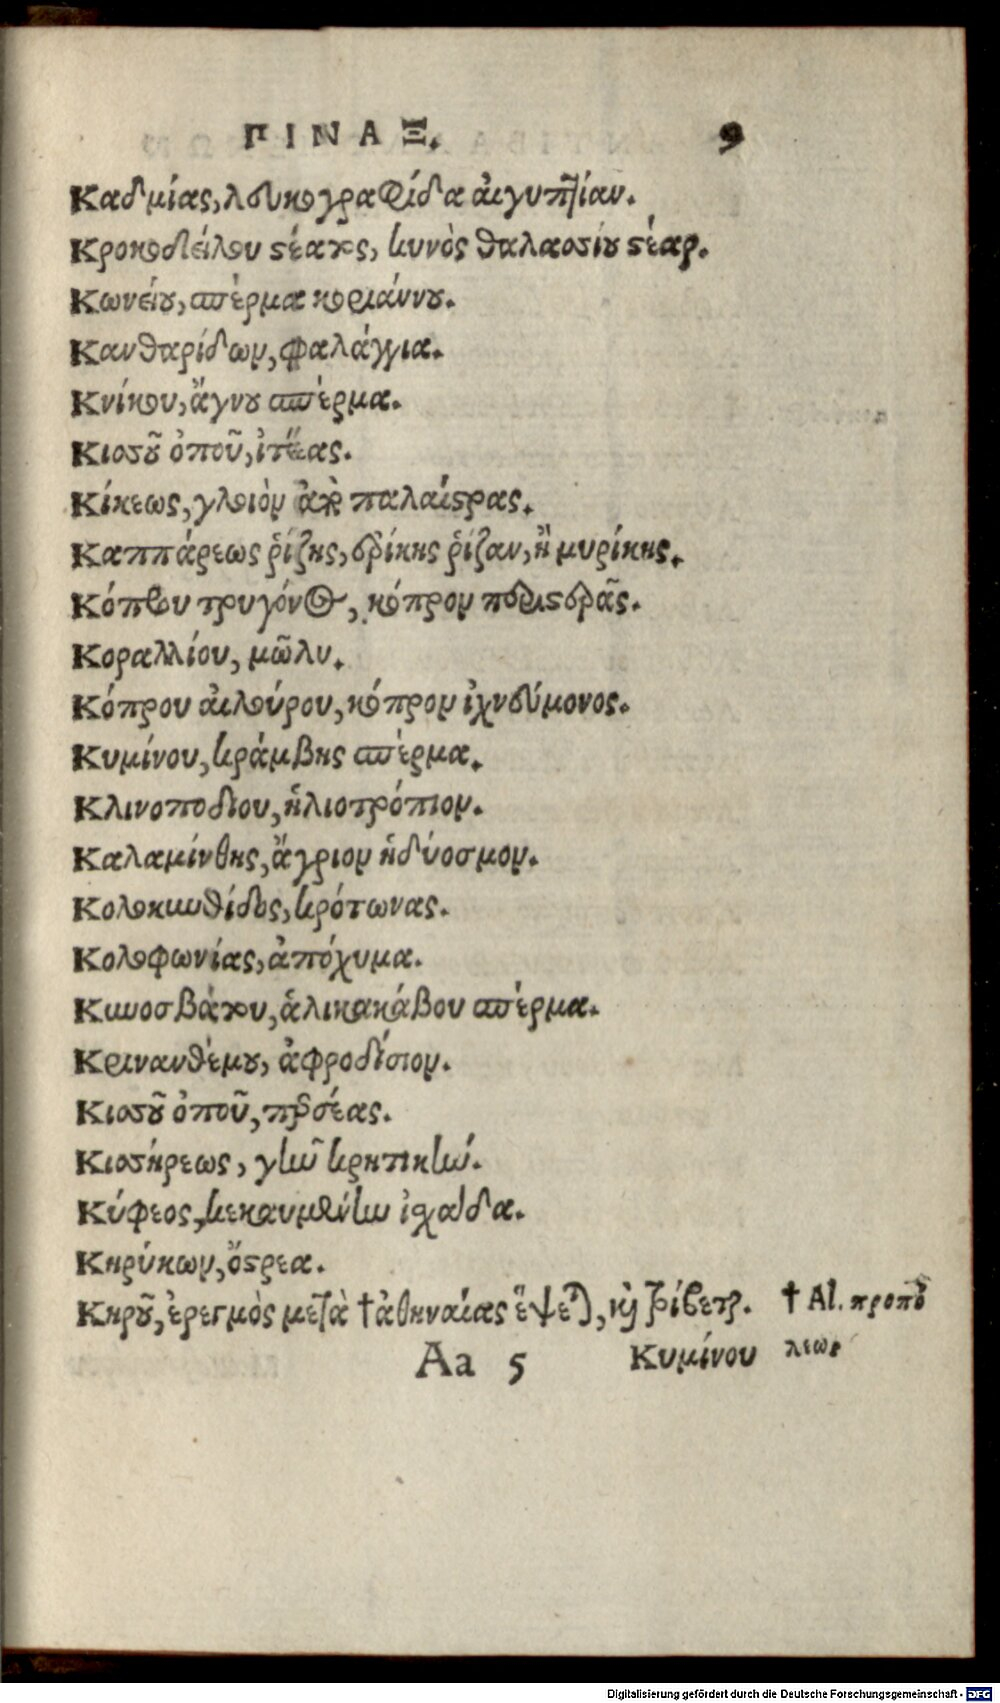 ΠΙΝΑΞ. 9
Καδμίας, λευκογραφίδα αἰγυπτίαν.
Κροκοδείλου στέατος, κυνὸς θαλασσίου στέαρ.
Κωνείου, σπέρμα κοριάννου.
Κανθαρίδων, φαλάγγια.
Κνίκου, ἄγνου σπέρμα.
Κισσοῦ ὀποῦ, ἰτέας.
Κίκεως, γλοιὸν ἀπὸ παλαίστρας.
Καππάρεως ῥίζης, ἐρίκης ῥίζαν, ἢ μυρίκης.
Κόπρου τρυγόνος, κόπρον περιστερᾶς.
Κοραλλίου, μῶλυ.
Κόπρου αἰλούρου, κόπρον ἰχνεύμονος.
Κυμίνου, κράμβης σπέρμα.
Κλινοποδίου, ἡλιοτρόπιον.
Καλαμίνθης, ἄγριον ἡδύοσμον.
Κολοκυνθίδος, κρότωνας.
Κολοφωνίας, ἀπόχυμα.
Κυνοσβάτου, ἁλικακάβου σπέρμα.
Κρινανθέμου, ἀφροδίσιον.
Κισσοῦ ὀποῦ, περσέας.
Κισσήρεως, γῆν κρητικήν.
Κύφεος, κεκαυμένην ἰσχάδα.
Κηρύκων, ὄστρεα.
Κηροῦ, ἐρεγμὸς μετὰ †ἀθηναίας ἕψεται, καὶ τρίβεται. † Al. προπό
λεως
Aa 5 Κυμίνου
Digitalisierung gefördert durch die Deutsche Forschungsgemeinschaft - DFG